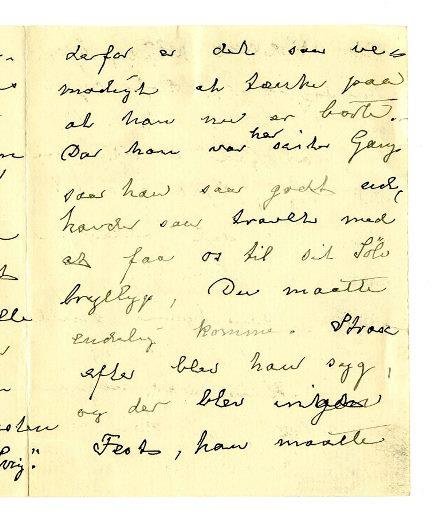 derfor er det saa ve=
modigt at tænke paa
at han nu er borte.
Da han var her sidste Gang
saa han saa godt ud,
havde saa travlt med
at faa os til sit Sølv
bryllup, Du maatte
endelig komme. Strax
efter blev han syg,
og der blev ingen
Fest, han maatte